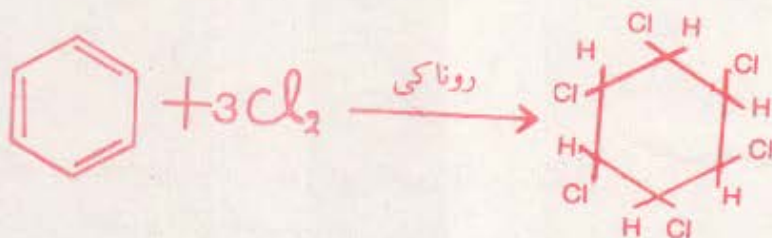 +3Cl₂
روناکی
Cl H
H Cl
Cl H
H Cl
Cl H
H Cl